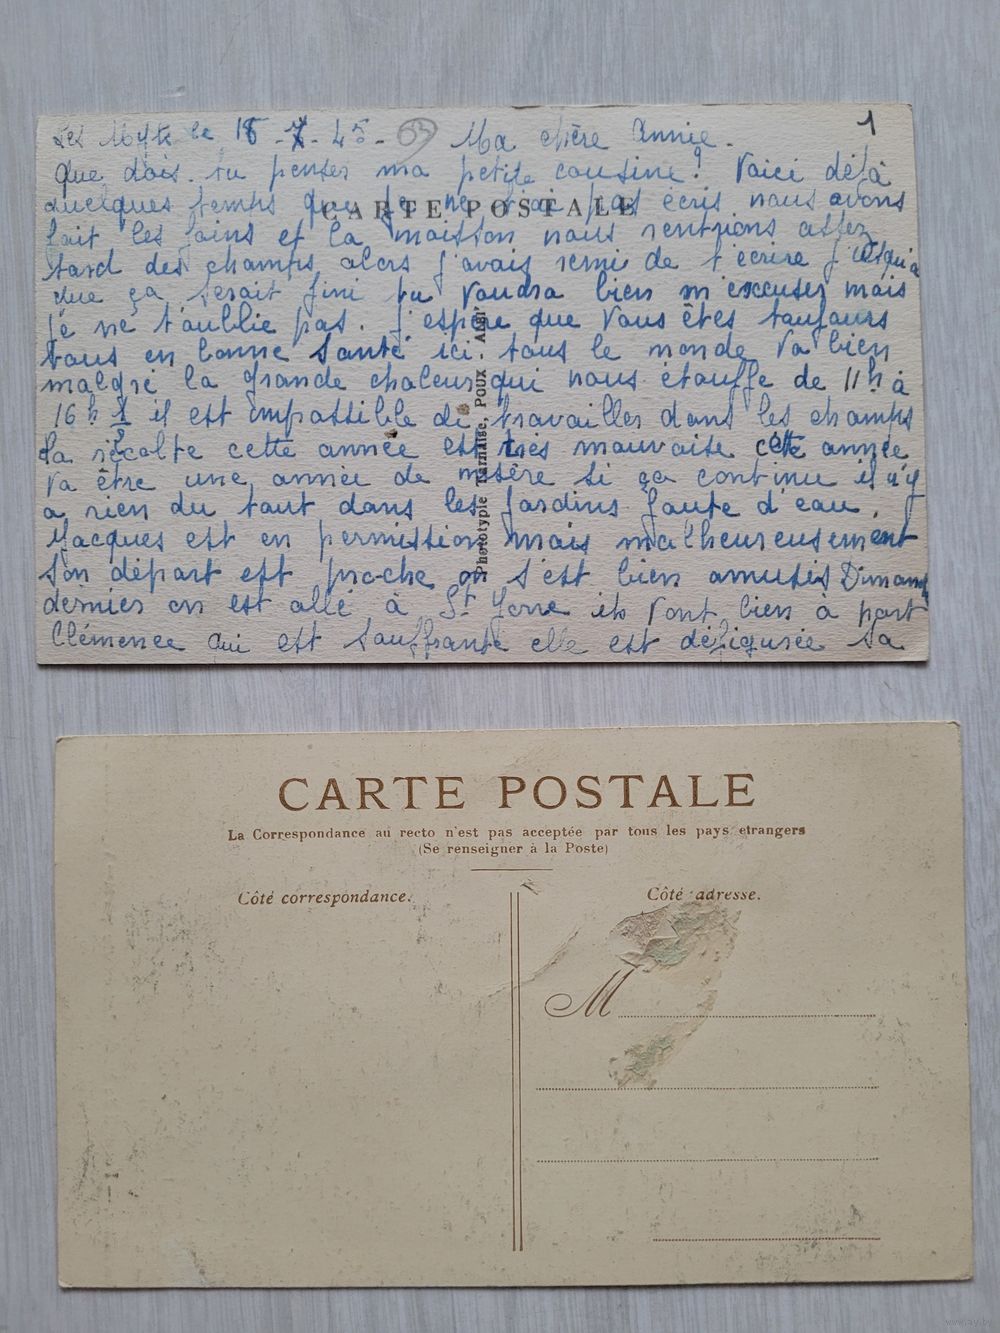 le 18-7-45- 63 Ma chère Annie. 1
Que dois-tu penser ma petite cousine? Voici déjà
quelques temps que je ne t'ai pas écris nous avons
CARTE POSTALE
fait les foins et la moisson nous rentrions assez
tard des champs alors j'avais remi de t'écrire jusqu'a
que ça serait fini tu voudra bien m'excuser mais
je ne t'oublie pas. J'espère que vous êtes toujours
tous en bonne santé ici tous le monde va bien
malgré la grande chaleur qui nous étouffe de 11h à
16h ½ il est impossible de travailler dans les champs
la récolte cette année est très mauvaise cette année
va être une année de misère si ça continu il n'y
a rien du tout dans les jardins faute d'eau.
Jacques est en permission mais malheureusement
son départ est proche on s'est bien amusés Dimanch
dernier on est allé à St Yorre ils vont bien à part
Clémence qui est souffrante elle est défigurée sa
Phototypie Tarnaise, POUX - ALBI
CARTE POSTALE
La Correspondance au recto n'est pas acceptée par tous les pays etrangers
(Se renseigner à la Poste)
Côté correspondance.
Côté adresse.
M